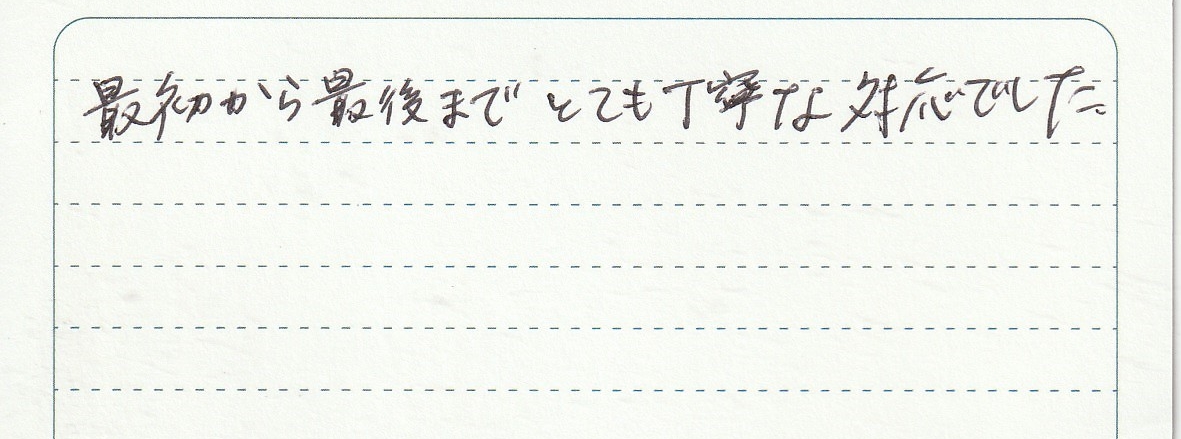 最初から最後までとても丁寧な対応でした。